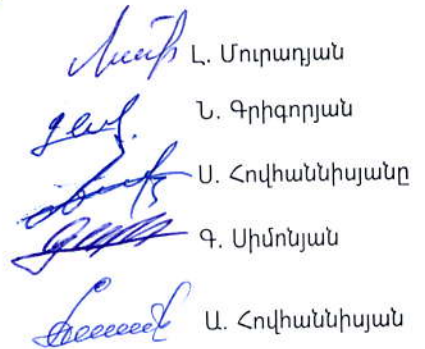 Լ. Մուրադյան
Ն. Գրիգորյան
Ս. Հովհաննիսյանը
Գ. Սիմոնյան
Ա. Հովհաննիսյան